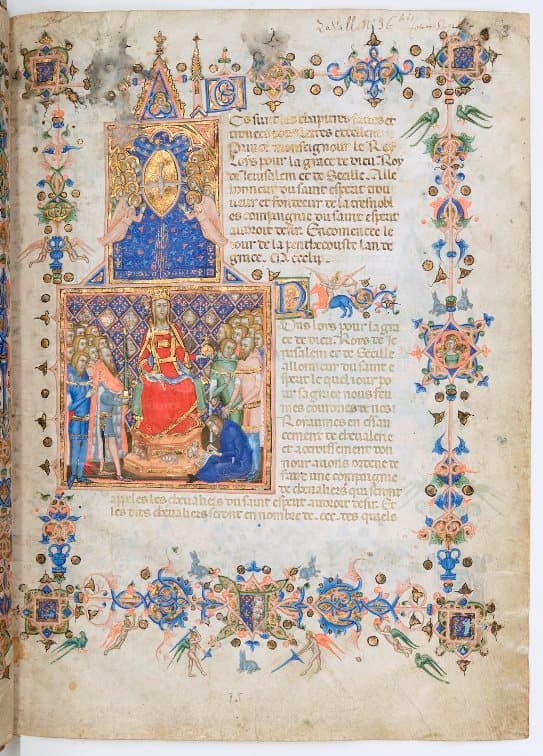 Ce sunt les chapitres faittes et
trouees
Prince monseignour le Rey
Loys pour la grace de dieu Roy
de Jerusalem et de Secille Alle
honneur du saint esperit trou
ueur et fondeur de la tresnoble
compaignie du saint esperit
au droit desir. Encomencee le
iour de la penthecouste lan de
grace.
Nous loys pour la gra
ce de dieu Roys de Je
rusalem et de Secille
allonneur du saint e
sperit le quel iour po
ur sa grace nous feu
mes couronne de nos
Royaumes en essau
cement de cheualerie
et accroissement don
nour auons ordene de
faire une compaignie
de cheualiers qui seront
appelles les cheualiers du saint esperit au droit desir. Et
les dis cheualiers seront en nombre de .ccc. des quels